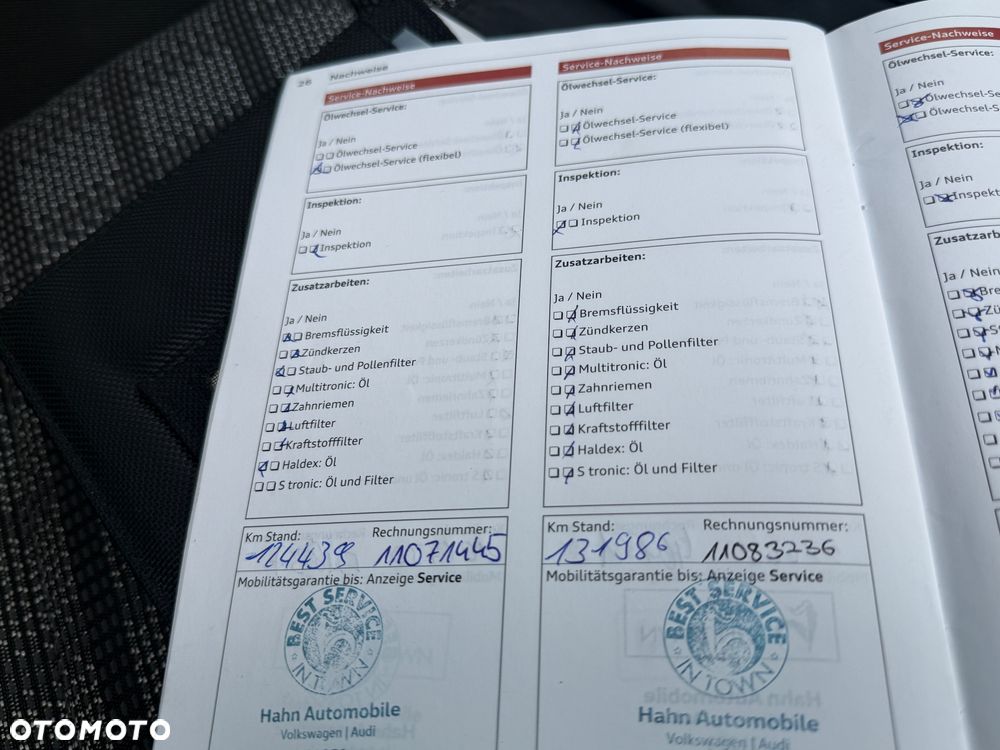 26 Nachweise
Service-Nachweise
Ölwechsel-Service:
Ja / Nein
Ölwechsel-Service
Ölwechsel-Service (flexibel)
Inspektion:
Ja / Nein
Inspektion
Zusatzarbeiten:
Ja / Nein
Bremsflüssigkeit
Zündkerzen
Staub- und Pollenfilter
Multitronic: Öl
Zahnriemen
Luftfilter
Kraftstofffilter
Haldex: Öl
S tronic: Öl und Filter
Km Stand: Rechnungsnummer:
124439 11071445
Mobilitätsgarantie bis: Anzeige Service
BEST SERVICE
IN TOWN
Hahn Automobile
Volkswagen | Audi
Service-Nachweise
Ölwechsel-Service:
Ja / Nein
Ölwechsel-Service
Ölwechsel-Service (flexibel)
Inspektion:
Ja / Nein
Inspektion
Zusatzarbeiten:
Ja / Nein
Bremsflüssigkeit
Zündkerzen
Staub- und Pollenfilter
Multitronic: Öl
Zahnriemen
Luftfilter
Kraftstofffilter
Haldex: Öl
S tronic: Öl und Filter
Km Stand: Rechnungsnummer:
131986 11083236
Mobilitätsgarantie bis: Anzeige Service
BEST SERVICE
IN TOWN
Hahn Automobile
Volkswagen | Audi
Service-Nachweise
Ölwechsel-Service:
Ja / Nein
Ölwechsel-Se
Ölwechsel-S
Inspektion:
Ja / Nein
Inspekt
Zusatzarb
Ja / Nein
Bre
Zü
OTOMOTO